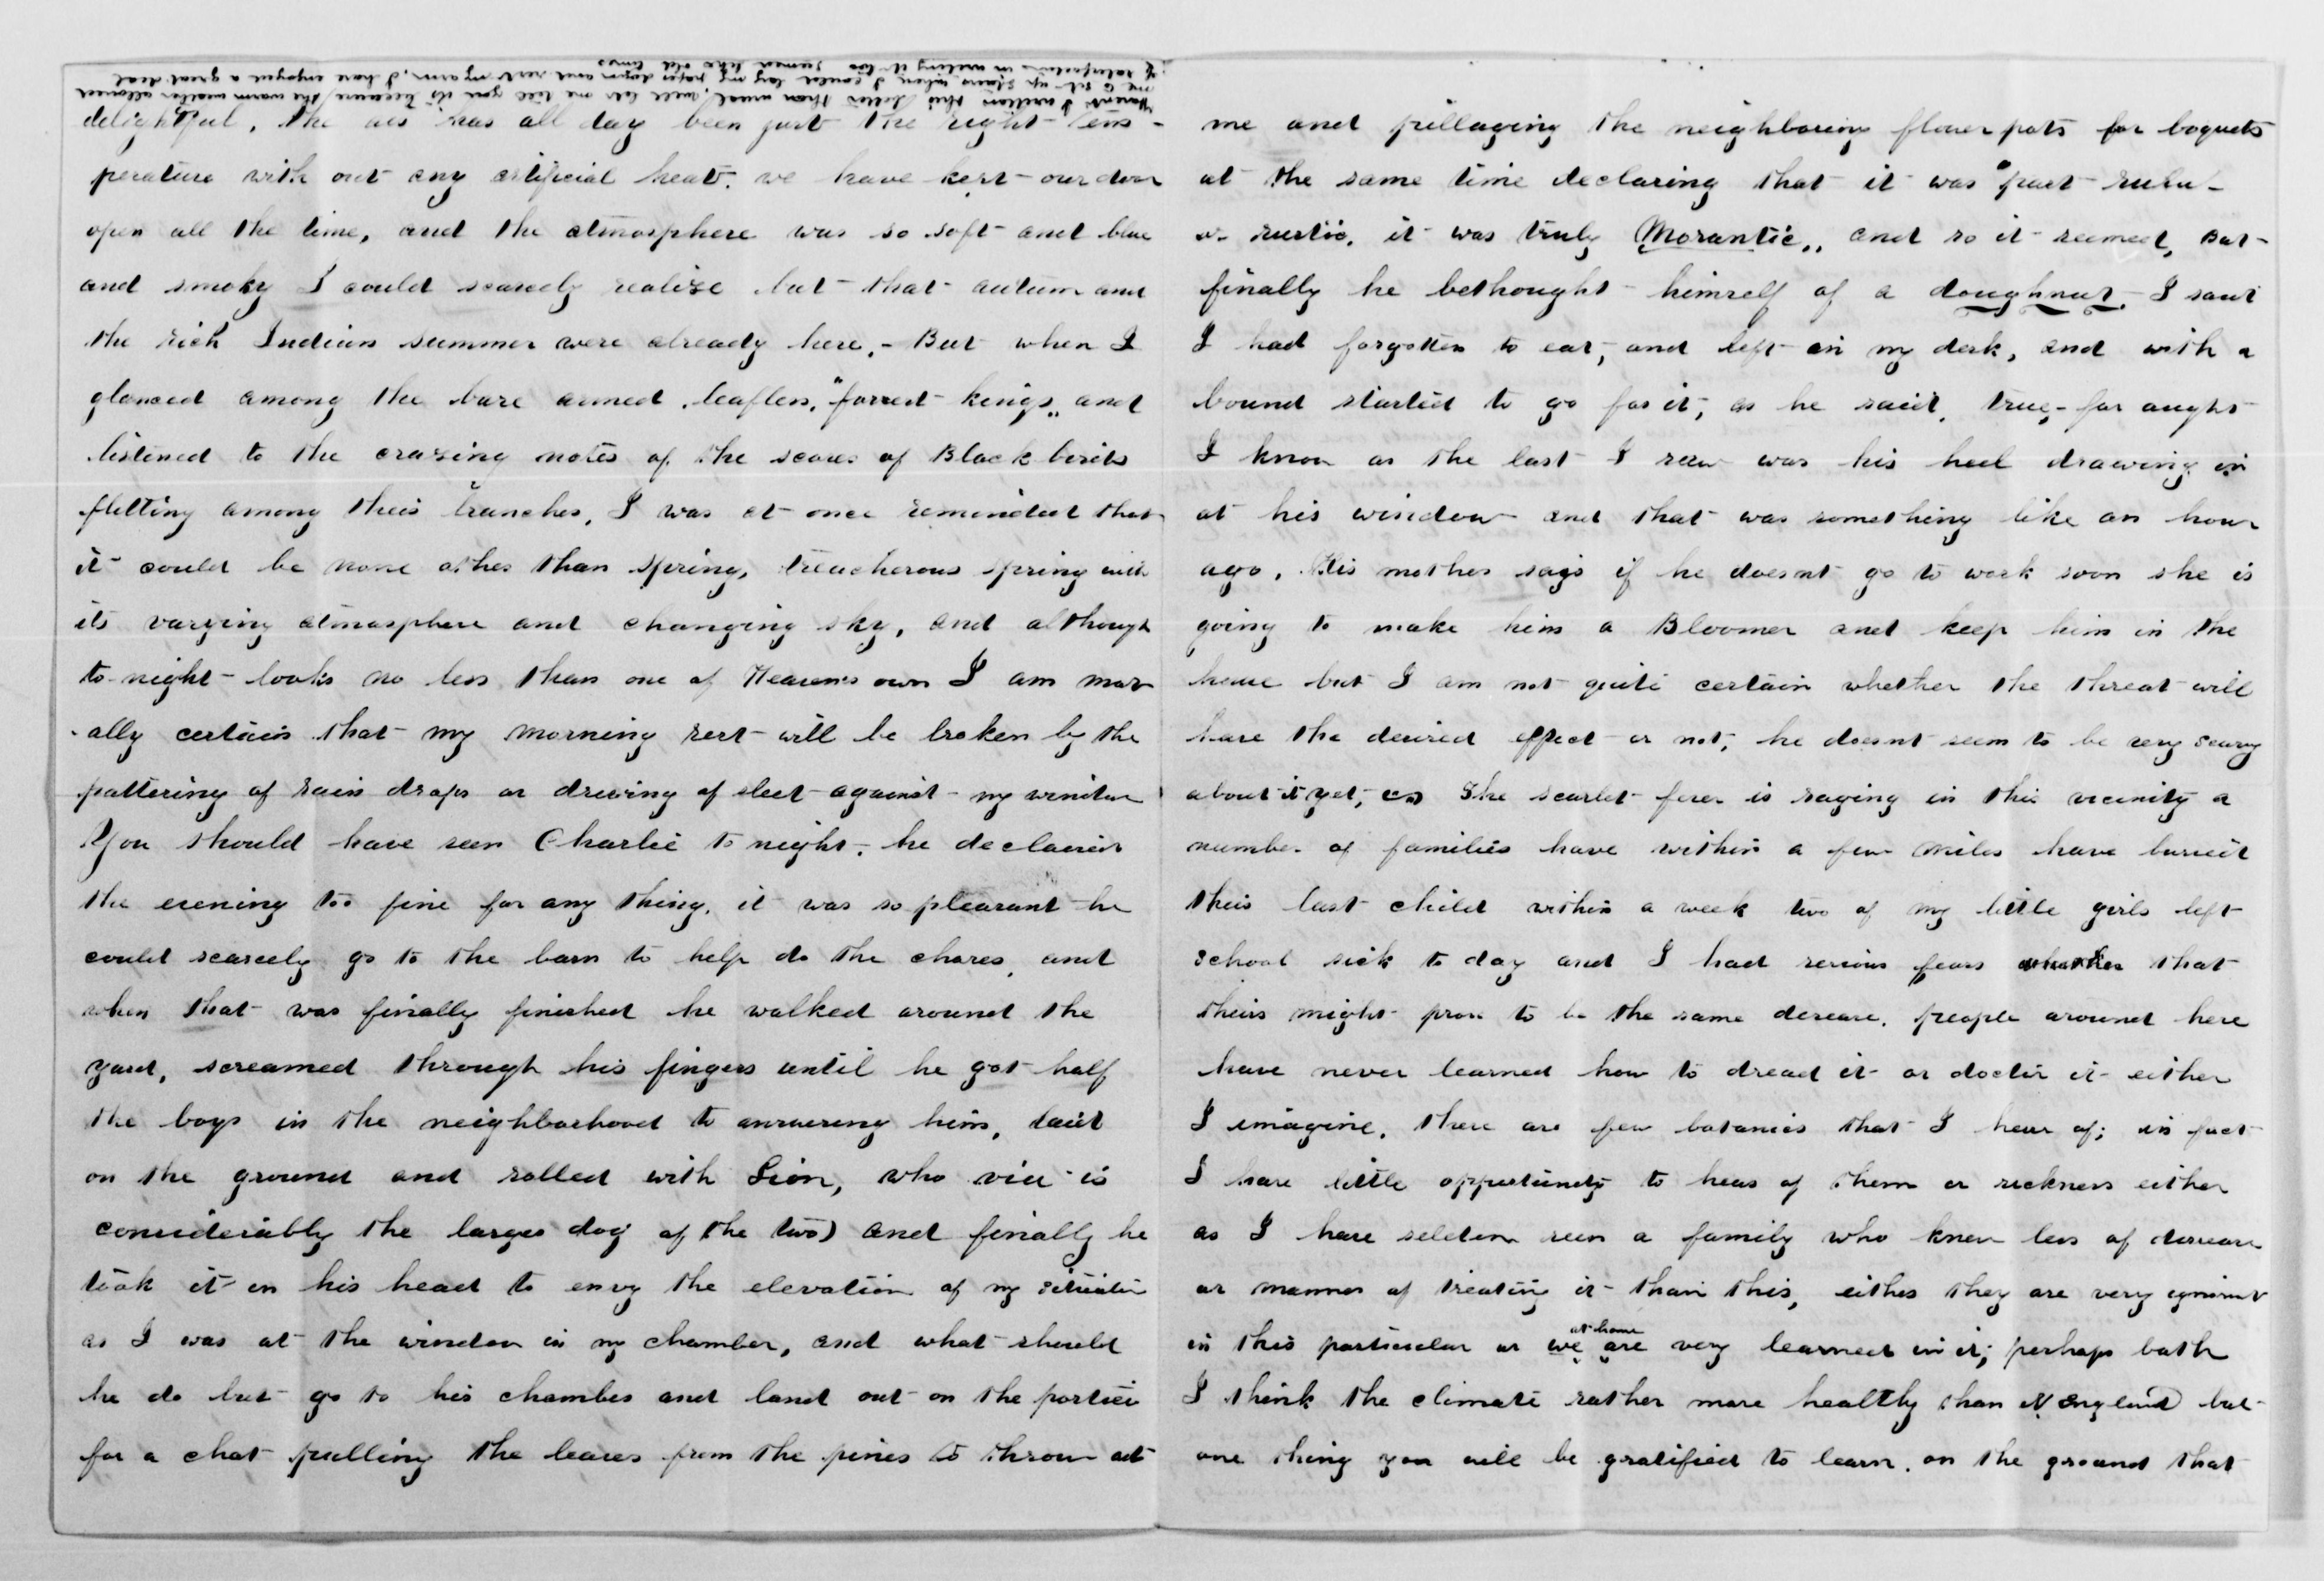 Havent I written this letter better than usual, well let me tell you its because the warm weather allowed
me to set up stairs where I could lay my paper down and rest my arm, I have enjoyed a great deal
of satisfaction in writing it too seemed like old times
delightful, the air has all day been just the right tem-
perature with out any artificial heat. we have kept our door
open all the time, and the atmosphere was so soft and blue
and smoky I could scarcely realize but that autum and
the rich Indian summer were already here,- But when I
glanced among the bare armed leafless, "forrest kings,, and
listened to the crazing notes of the scores of Black birds
flitting among their branches, I was at once reminded that
it could be none other than Spring, treacherous spring with
its varying atmosphere and changing sky, and although
to-night looks no less than one of Heavens own I am mor
-ally certain that my morning rest will be broken by the
pattering of rain drops or driving of sleet against my window
You should have seen Charlie to night, he declared
the evening too fine for any thing, it was so pleasant he
could scarcely go to the barn to help do the chores, and
when that was finally finished he walked around the
yard, screamed through his fingers until he got half
the boys in the neighborhood to answering him, laid
on the ground and rolled with Lion, who is
considerably the larger dog of the two) and finally he
took it in his head to envy the elevation of my situation
as I was at the window in my chamber, and what should
he do but go to his chamber and land out on the portico
for a chat pulling the leaves from the pines to throw at
me and pillaging the neighboring flower pots for boquets
at the same time declaring that it was "past
or rustic, it was truly Morantic,, and so it seemed, But
finally he bethought himself of a doughnut I said
I had forgotten to eat, and left in my desk, and with a
bound started to go for it, as he said, true, for aught
I know as the last I saw was his heel drawing in
at his window and that was something like an hour
ago, His mother says if he doesnt go to work soon she is
going to make him a Bloomer and keep him in the
house but I am not quite certain whether the threat will
have the desired effect or not, he doesnt seem to be very scary
about it yet, The scarlet fever is raging in this vicinity a
number of families have within a few miles have buried
their last child within a week two of my little girls left
school sick to day and I had serious fears that
theirs might prove to be the same disease, people around here
have never learned how to dread it or doctor it either
I imagine, there are few botanics that I hear of; in fact
I have little oppertunity to hear of them or sickness either
as I have seldom seen a family who knew less of disease
or manner of treating it than this, either they are very ignorant
in this particular or we at home are very learned in it; perhaps both
I think the climate rather more healthy than N England but
one thing you will be gratified to learn, on the ground that